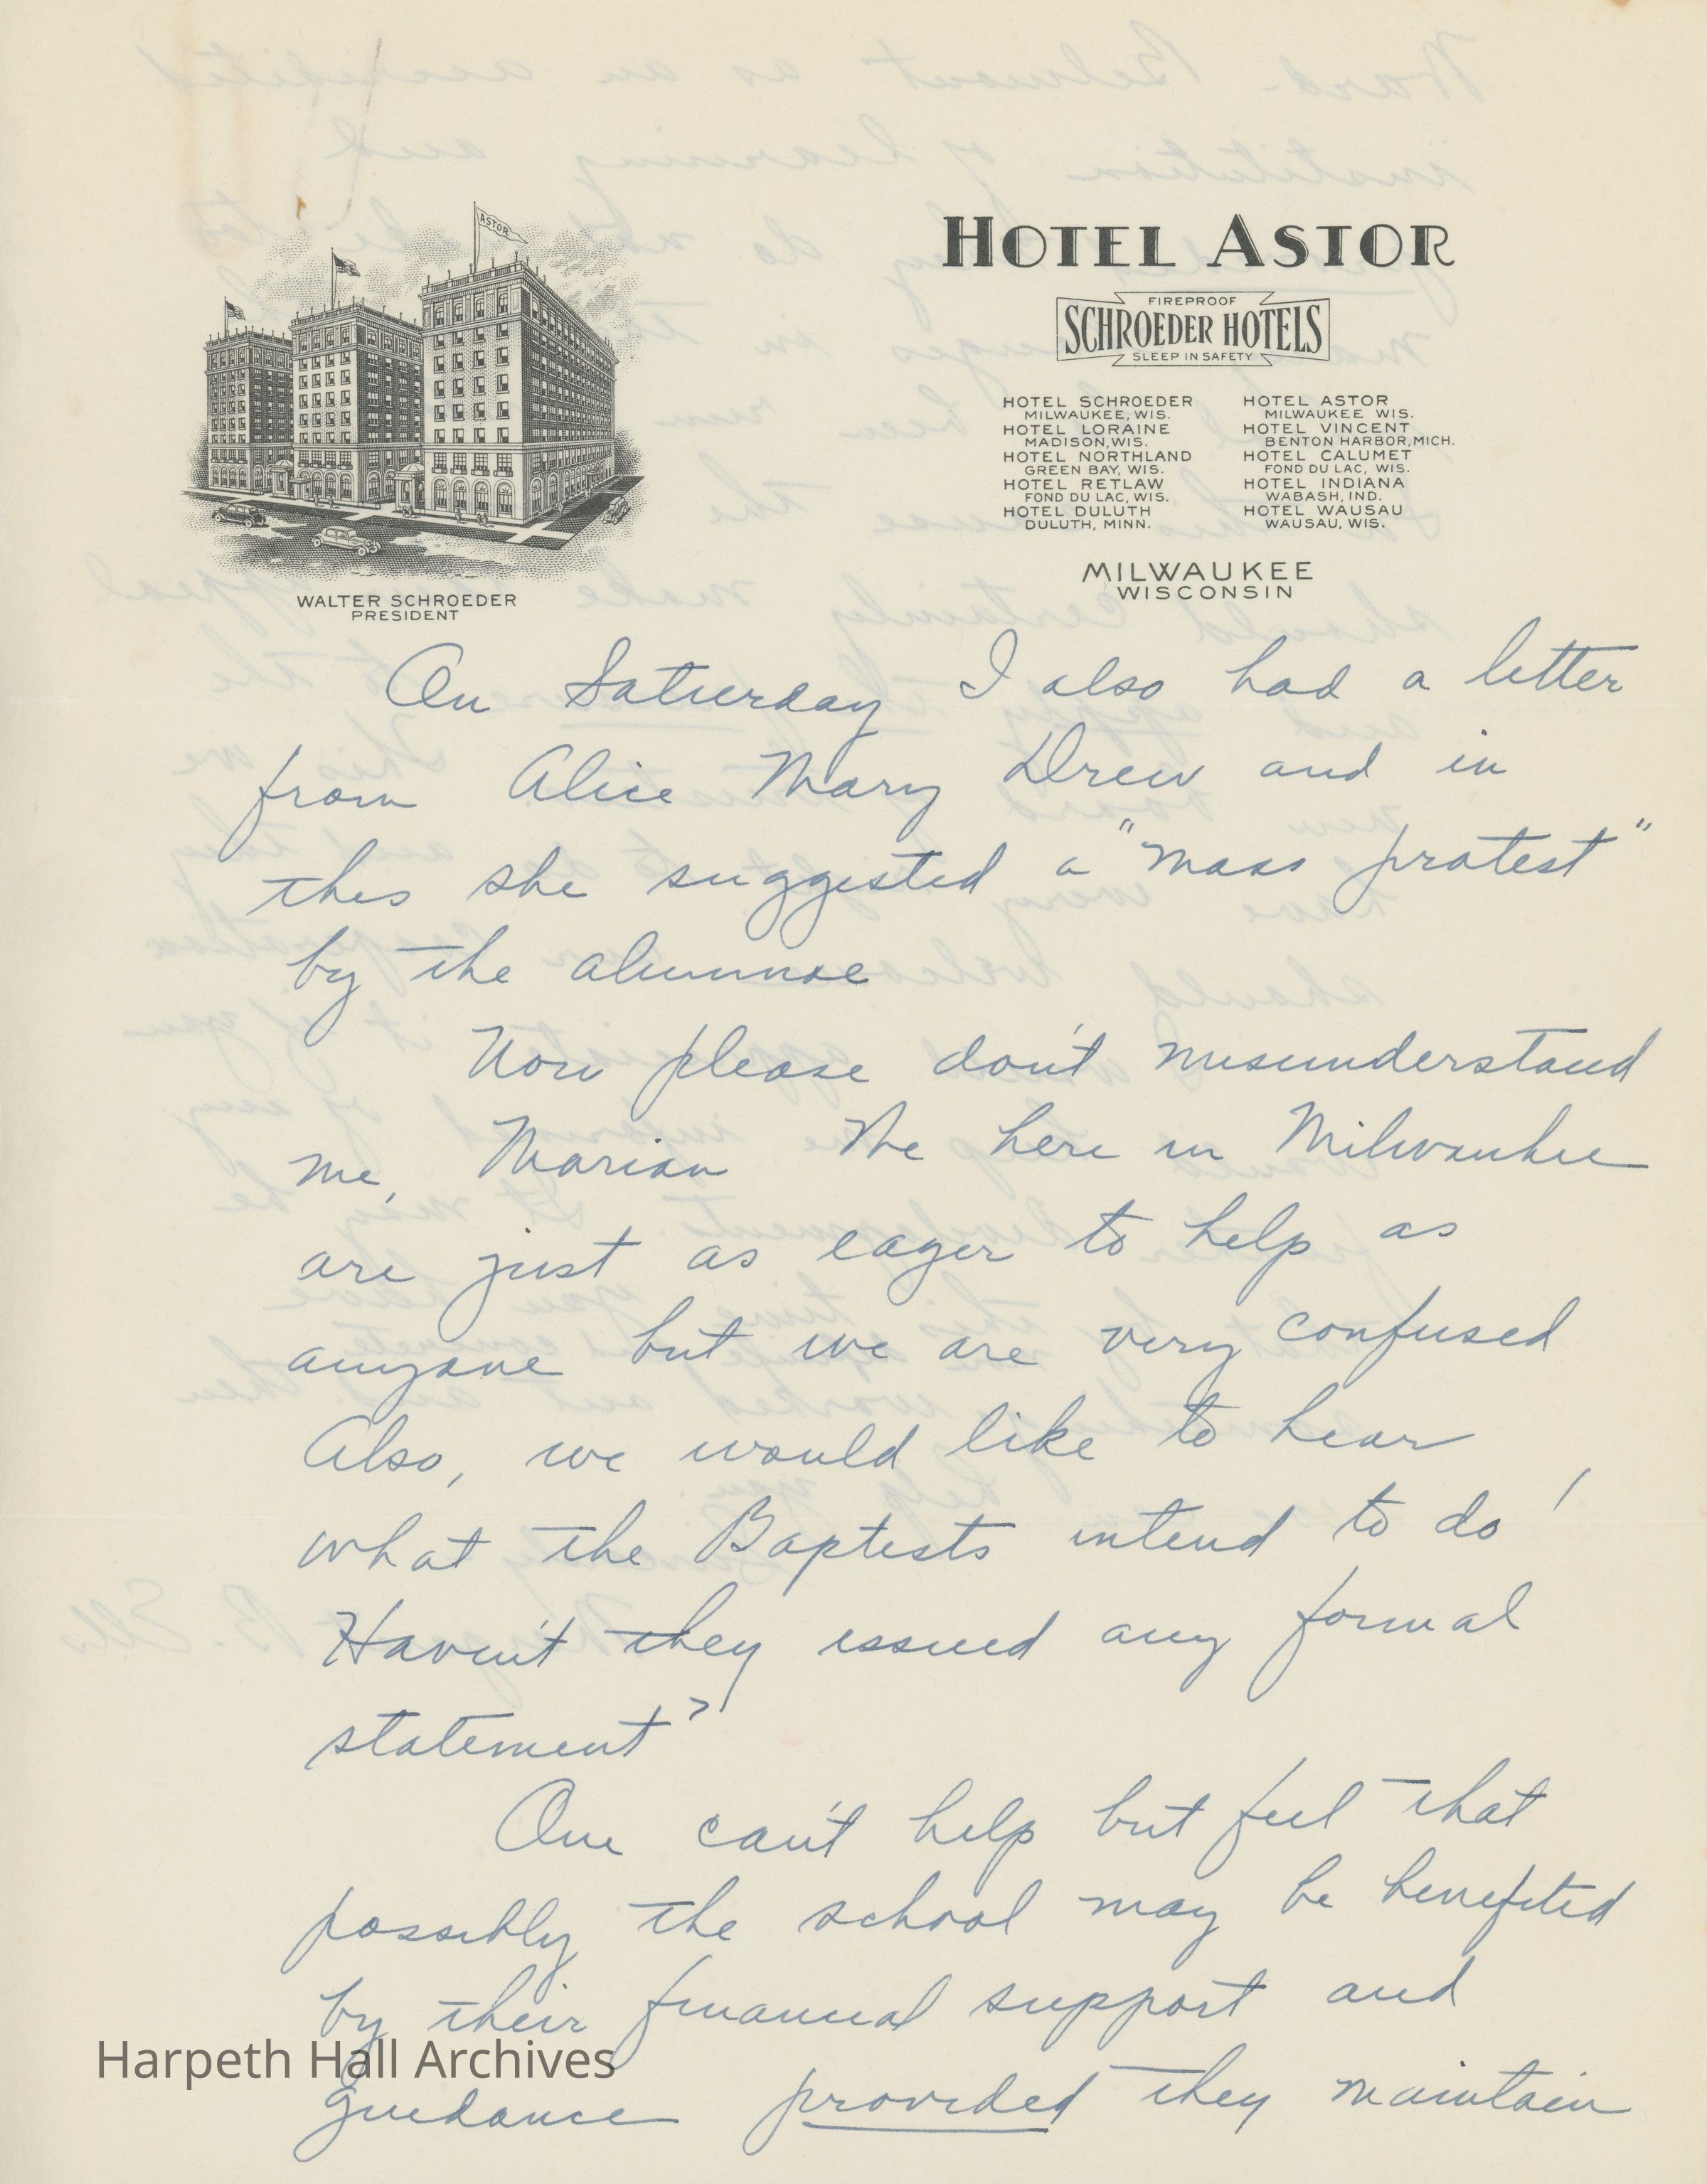 ASTOR
HOTEL ASTOR
FIREPROOF
SCHROEDER HOTELS
SLEEP IN SAFETY
HOTEL SCHROEDER
MILWAUKEE, WIS.
HOTEL LORAINE
MADISON, WIS.
HOTEL NORTHLAND
GREEN BAY, WIS.
HOTEL RETLAW
FOND DU LAC, WIS.
HOTEL DULUTH
DULUTH, MINN.
HOTEL ASTOR
MILWAUKEE WIS.
HOTEL VINCENT
BENTON HARBOR, MICH.
HOTEL CALUMET
FOND DU LAC, WIS.
HOTEL INDIANA
WABASH, IND.
HOTEL WAUSAU
WAUSAU, WIS.
MILWAUKEE
WISCONSIN
WALTER SCHROEDER
PRESIDENT
On Saturday I also had a letter
from Alice Mary Drew and in
this she suggested a "mass protest"
by the alumnae
Now please don't misunderstand
me, Marian We here in Milwaukee
are just as eager to help as
anyone but we are very confused
Also, we would like to hear
what the Baptists intend to do!
Haven't they issued any formal
statement?
One can't help but feel that
possibly the school may be benefited
by their financial support and
guidance provided they maintain
Harpeth Hall Archives